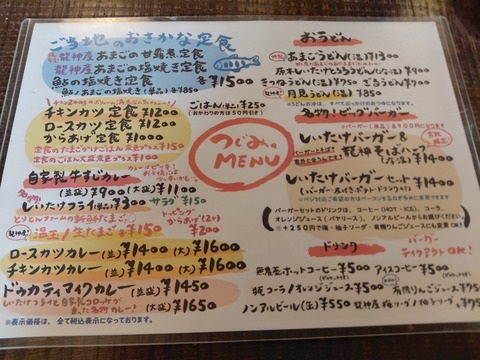 ご当地のおさかな定食
龍神産あまごの甘露煮定食
龍神産あまごの塩焼き定食
鮎の塩焼き定食 各¥1500
鮎/あまごの塩焼き(単品)各¥785
チキンカツ定食 ¥1200
ロースカツ定食 ¥1200
からあげ定食 ¥1000
ごはん(単品)¥250
(おかわりの方は50円引き)
自家製牛すじカレー
(並盛)¥900 (大盛)¥1100
しいたけフライ ¥1130 サラダ ¥150
トッピング
からあげ(2ケ)
¥200
温玉/生たまご ¥150
ロースカツカレー(並)¥1400 (大)¥1600
チキンカツカレー(並)¥1400 (大)¥1600
ドゥカティマイクカレー(並)¥1450
しいたけフライと自家製コロッケが
(大)¥1650
※表示価格は、全て税込表示になっております。
つぐみの
MENU
おうどん
あまごうどん(温)¥1300
きつねうどん(温)¥750 ざるうどん¥900
月見うどん(温)¥850
名物!ビッグバーガー
しいたけバーガー
龍神そばハーフ
(温)¥1400
しいたけバーガーセット
(バーガー・唐付きポテト・ドリンク付)
¥1400
バーガーセットのドリンクは、コーヒー(HOT・ICE)、コーラ、
オレンジジュース(バヤリース)、ノンアルビールからお選びください!
※+250円で梅・柚子ソーダ・有機りんごジュースにも変更OK!
ドリンク
バーガー
テイクアウトOK!
無農薬ホットコーヒー¥500 アイスコーヒー¥550
瓶コーラ/オレンジジュース¥500
ノンアルビール(缶)¥550